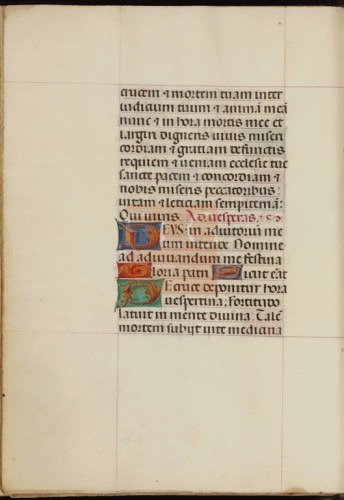 crucem & mortem tuam inter
iudicium tuum & animā meā
nunc & in hora mortis mee et
largiri digneris uiuis miseri
cordiam & gratiam defunctis
requiem & ueniam ecclesie tue
sancte pacem & concordiam &
nobis miseris peccatoribus
uitam & leticiam sempiternā:
Qui uiuis Ad uesperas
DEVS in adiutorium me
um intende Domine
ad adiuuandum me festina
Gloria patri Sicut erat
De cruce deponitur hora
uespertina: Fortitudo
latuit in mente diuina: Talē
mortem subijt uite medicina